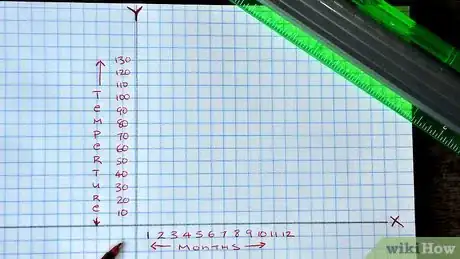 Y
130
120
110
100
90
80
70
60
50
40
30
20
10
TeMPeRTURe
X
1 2 3 4 5 6 7 8 9 10 11 12
MONTHS
wikiHow